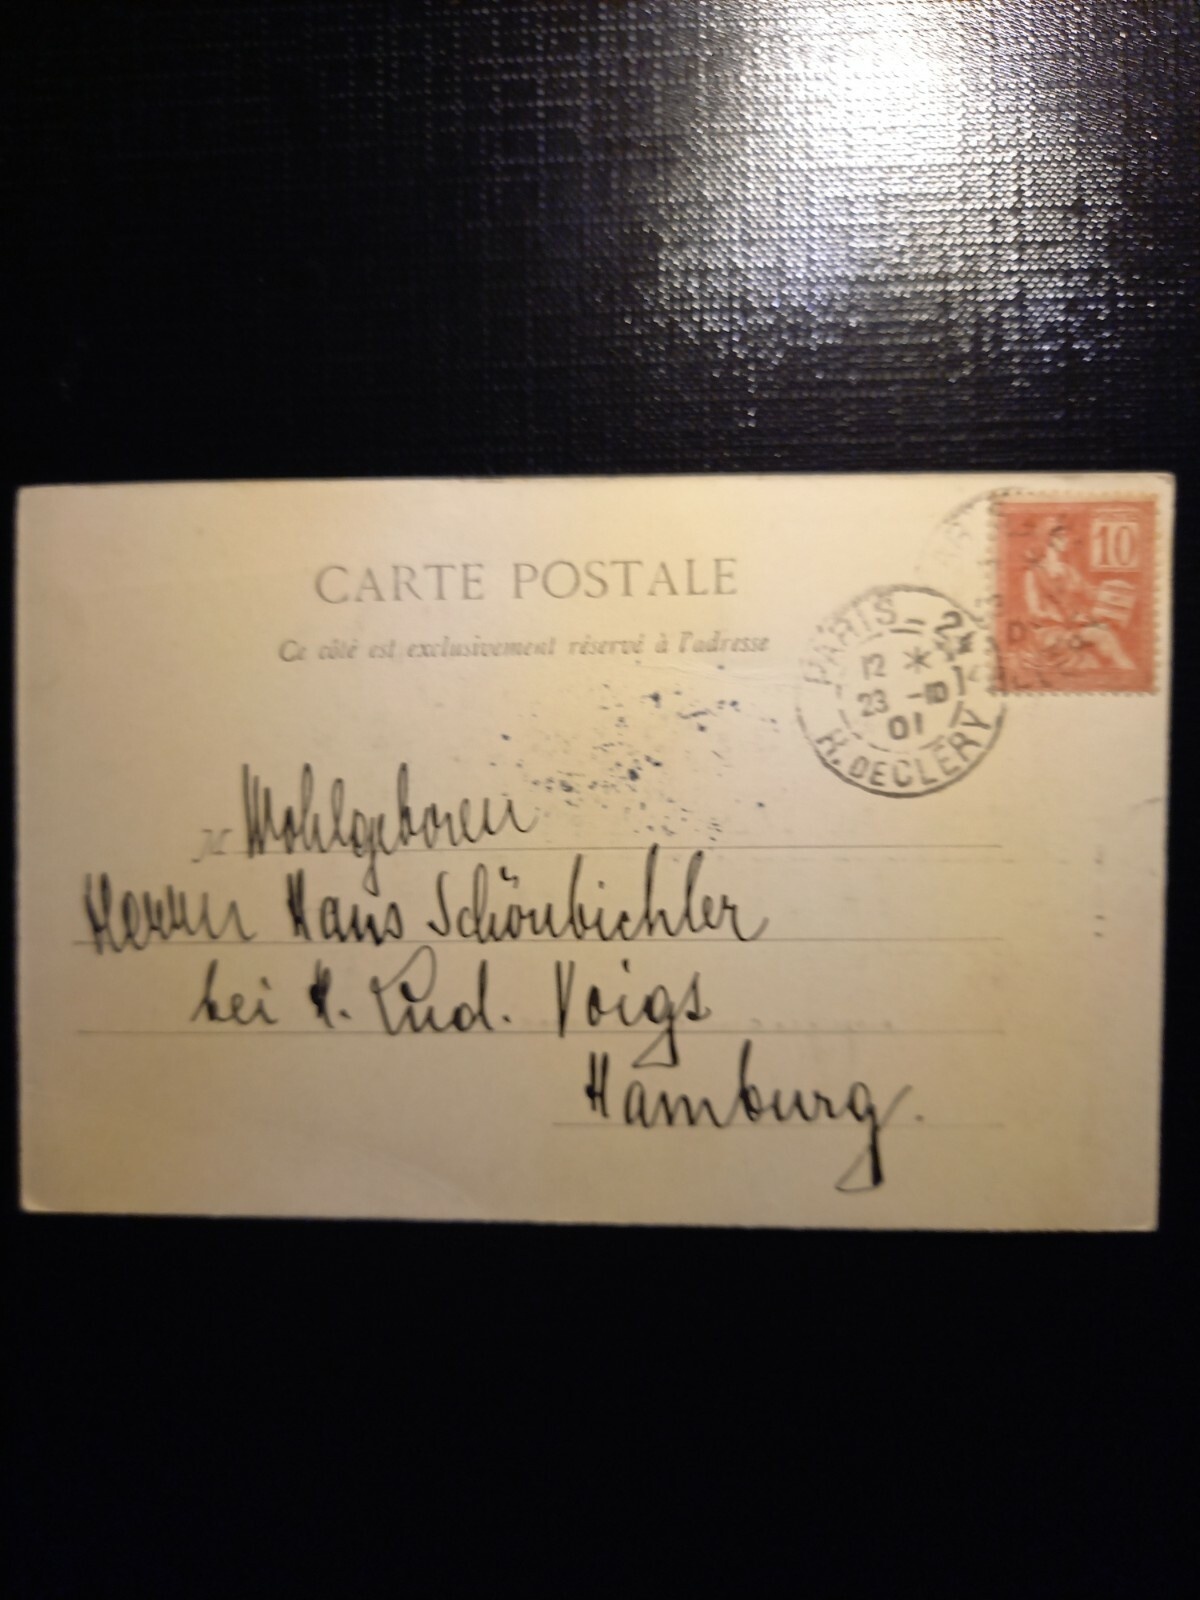 CARTE POSTALE
Ce côté est exclusivement réservé à l'adresse
10
PARIS - 2
12 *
23 -10
01
R. DE CLÉRY
M
Wohlgeboren
Herrn Hans Schönbichler
bei H. Lud. Voigs
Hamburg.